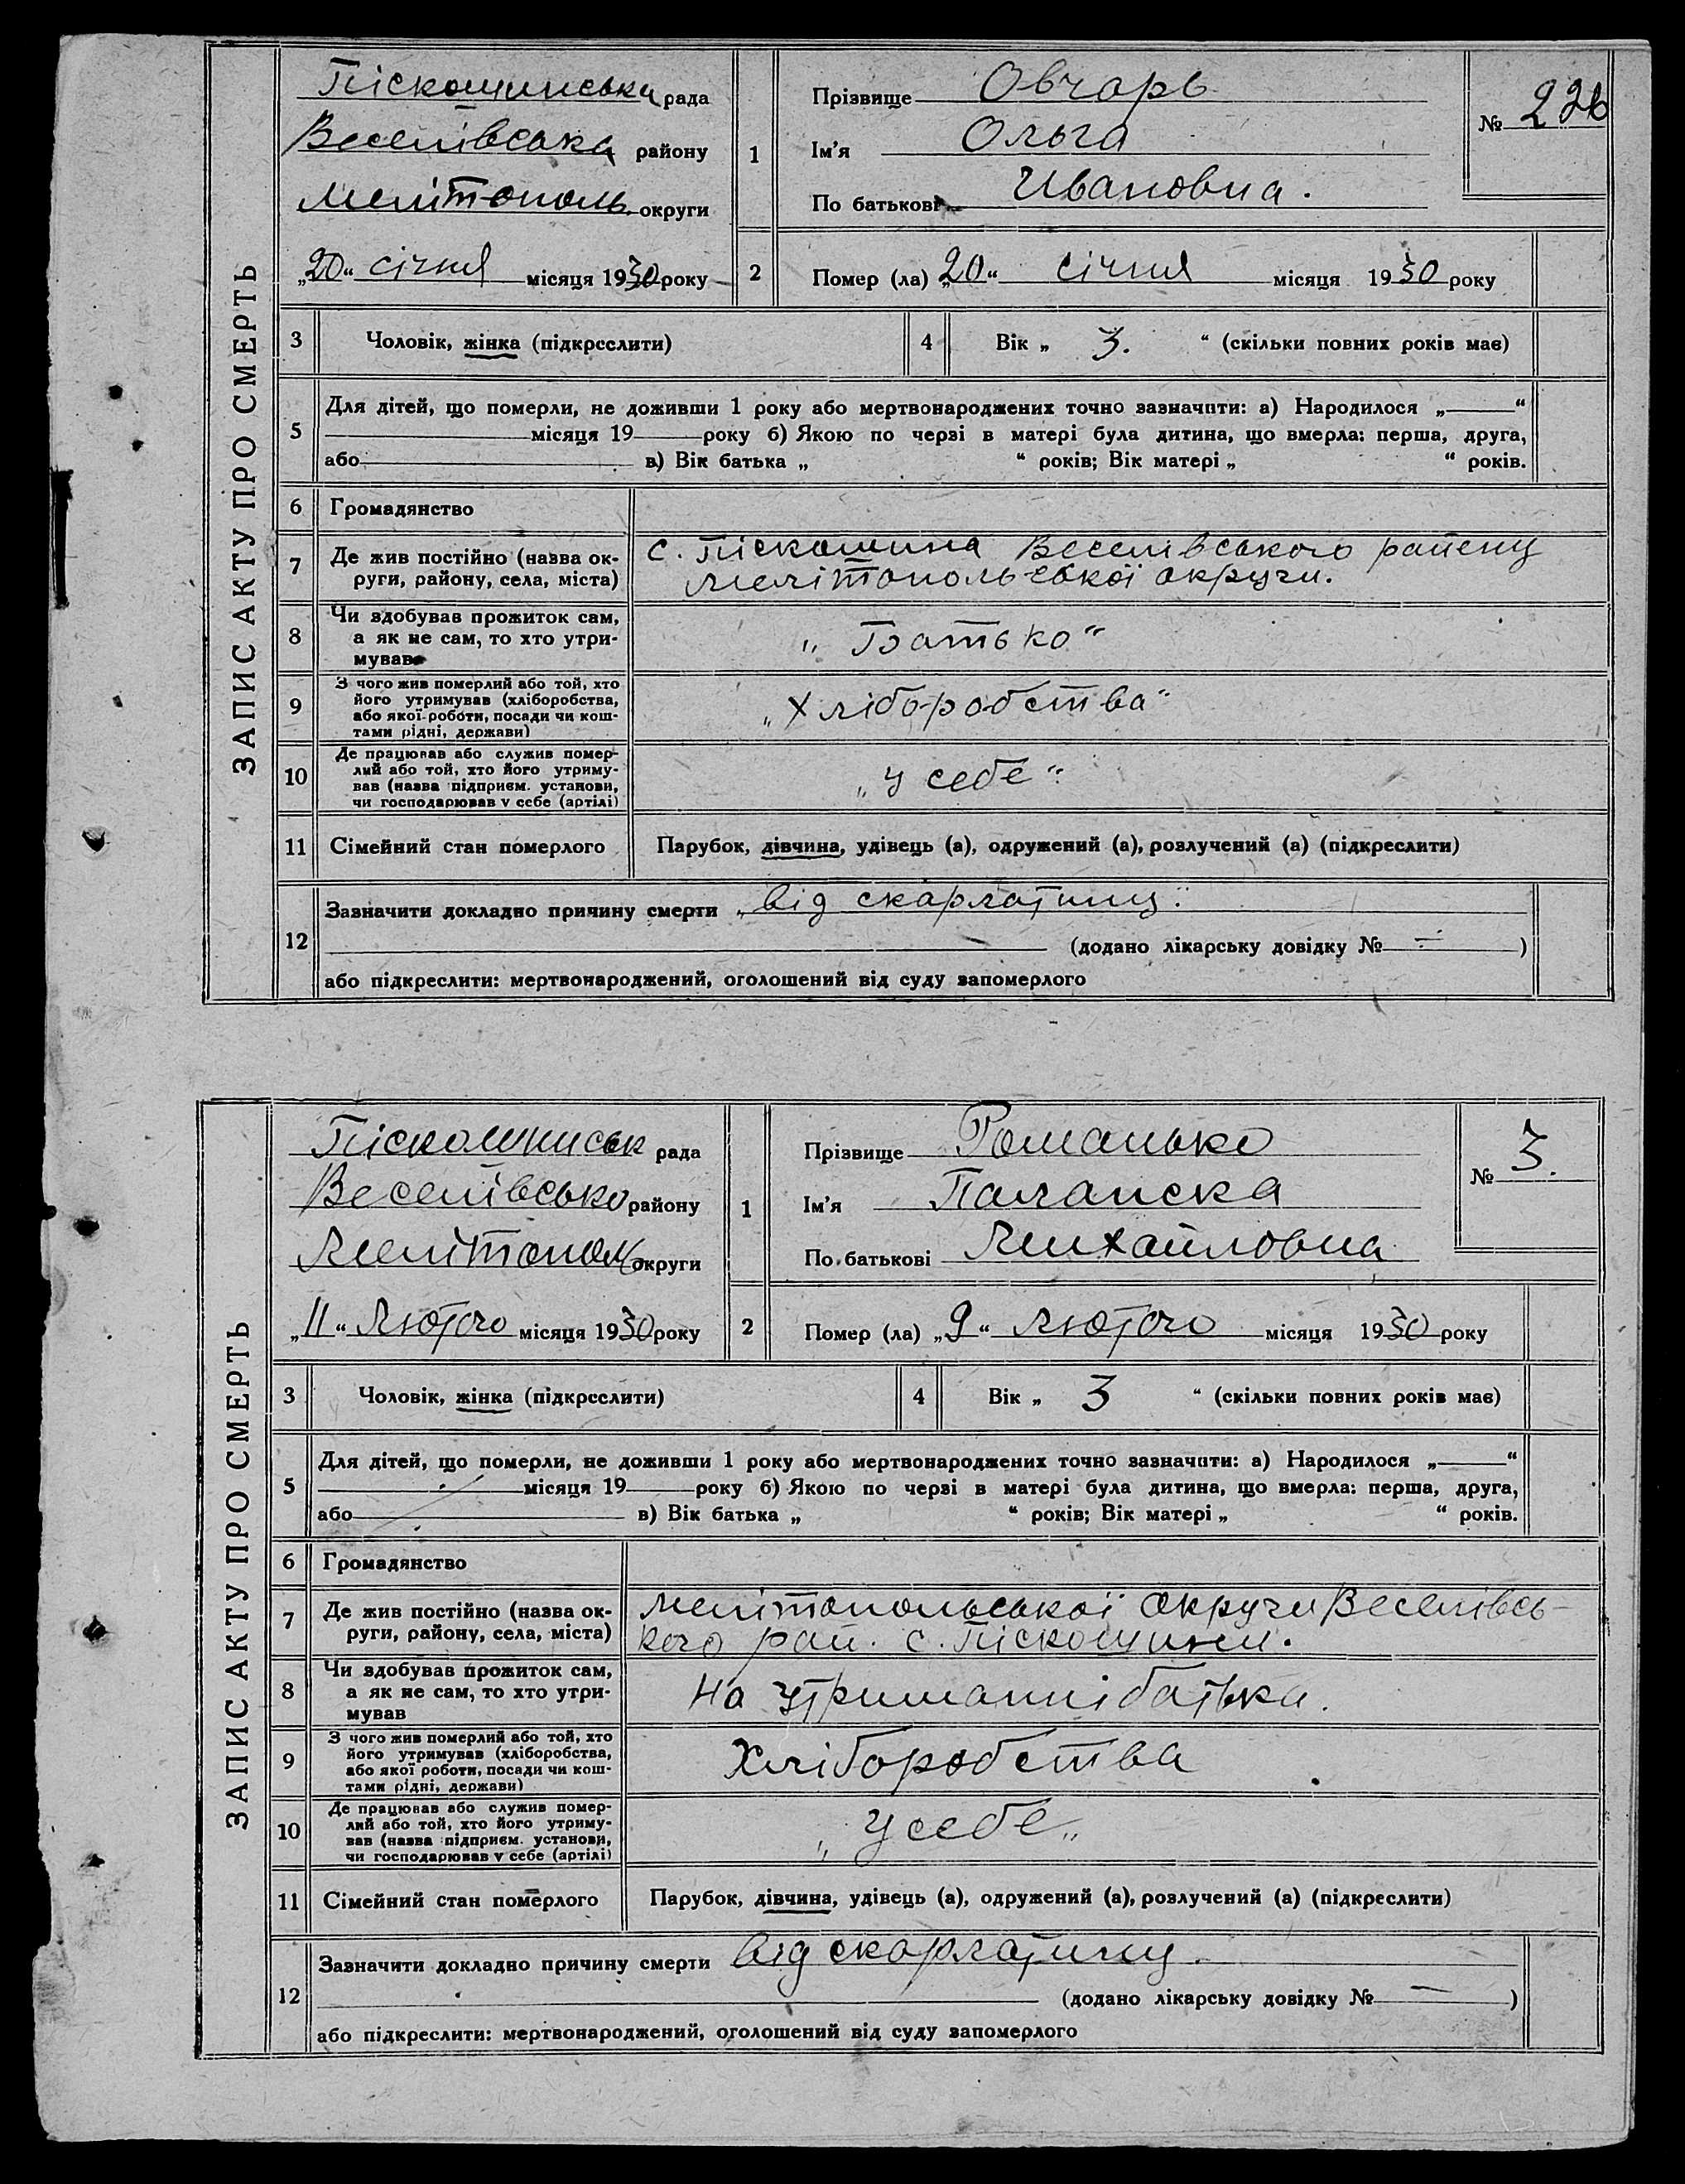 ЗАПИС АКТУ ПРО СМЕРТЬ
Піскошинська рада
Веселівська району
Мелітополь округи
„20“ січня місяця 1930 року
1
Прізвище Овчарь
Ім'я Ольга
По батькові Ивановна.
№ 226
2
Помер (ла) „20“ січня місяця 1930 року
3
Чоловік, жінка (підкреслити)
4
Вік „ 3. “ (скільки повних років має)
5
Для дітей, що померли, не доживши 1 року або мертвонароджених точно зазначити: а) Народилося „ “
місяця 19 року б) Якою по черзі в матері була дитина, що вмерла: перша, друга,
або в) Вік батька „ “ років; Вік матері „ “ років.
6
Громадянство
7
Де жив постійно (назва ок-
руги, району, села, міста)
с. Піскошина Веселівського району
Мелітопольської округи.
8
Чи здобував прожиток сам,
а як не сам, то хто утри-
мував
„Батько“
9
З чого жив померлий або той, хто
його утримував (хліборобства,
або якої роботи, посади чи кош-
тами рідні, держави)
„Хліборобства“
10
Де працював або служив помер-
лий або той, хто його утриму-
вав (назва підприєм. установи,
чи господарював у себе (артілі)
„у себе“
11
Сімейний стан померлого
Парубок, дівчина, удівець (а), одружений (а), розлучений (а) (підкреслити)
12
Зазначити докладно причину смерти „від скарлатини“
(додано лікарську довідку № — )
або підкреслити: мертвонароджений, оголошений від суду запомерлого
ЗАПИС АКТУ ПРО СМЕРТЬ
Піскошинськ рада
Веселівсько району
Мелітополь округи
„11“ Лютого місяця 1930 року
1
Прізвище Романько
Ім'я Палапска
По батькові Михайловна
№ 3.
2
Помер (ла) „9“ лютого місяця 1930 року
3
Чоловік, жінка (підкреслити)
4
Вік „ 3 “ (скільки повних років має)
5
Для дітей, що померли, не доживши 1 року або мертвонароджених точно зазначити: а) Народилося „ “
місяця 19 року б) Якою по черзі в матері була дитина, що вмерла: перша, друга,
або в) Вік батька „ “ років; Вік матері „ “ років.
6
Громадянство
7
Де жив постійно (назва ок-
руги, району, села, міста)
Мелітопольської округи Веселівсь-
кого рай. с. Піскошини.
8
Чи здобував прожиток сам,
а як не сам, то хто утри-
мував
на утриманні батька.
9
З чого жив померлий або той, хто
його утримував (хліборобства,
або якої роботи, посади чи кош-
тами рідні, держави)
Хліборобства
10
Де працював або служив помер-
лий або той, хто його утриму-
вав (назва підприєм. установи,
чи господарював у себе (артілі)
„у себе„
11
Сімейний стан померлого
Парубок, дівчина, удівець (а), одружений (а), розлучений (а) (підкреслити)
12
Зазначити докладно причину смерти від скарлатини.
(додано лікарську довідку № — )
або підкреслити: мертвонароджений, оголошений від суду запомерлого